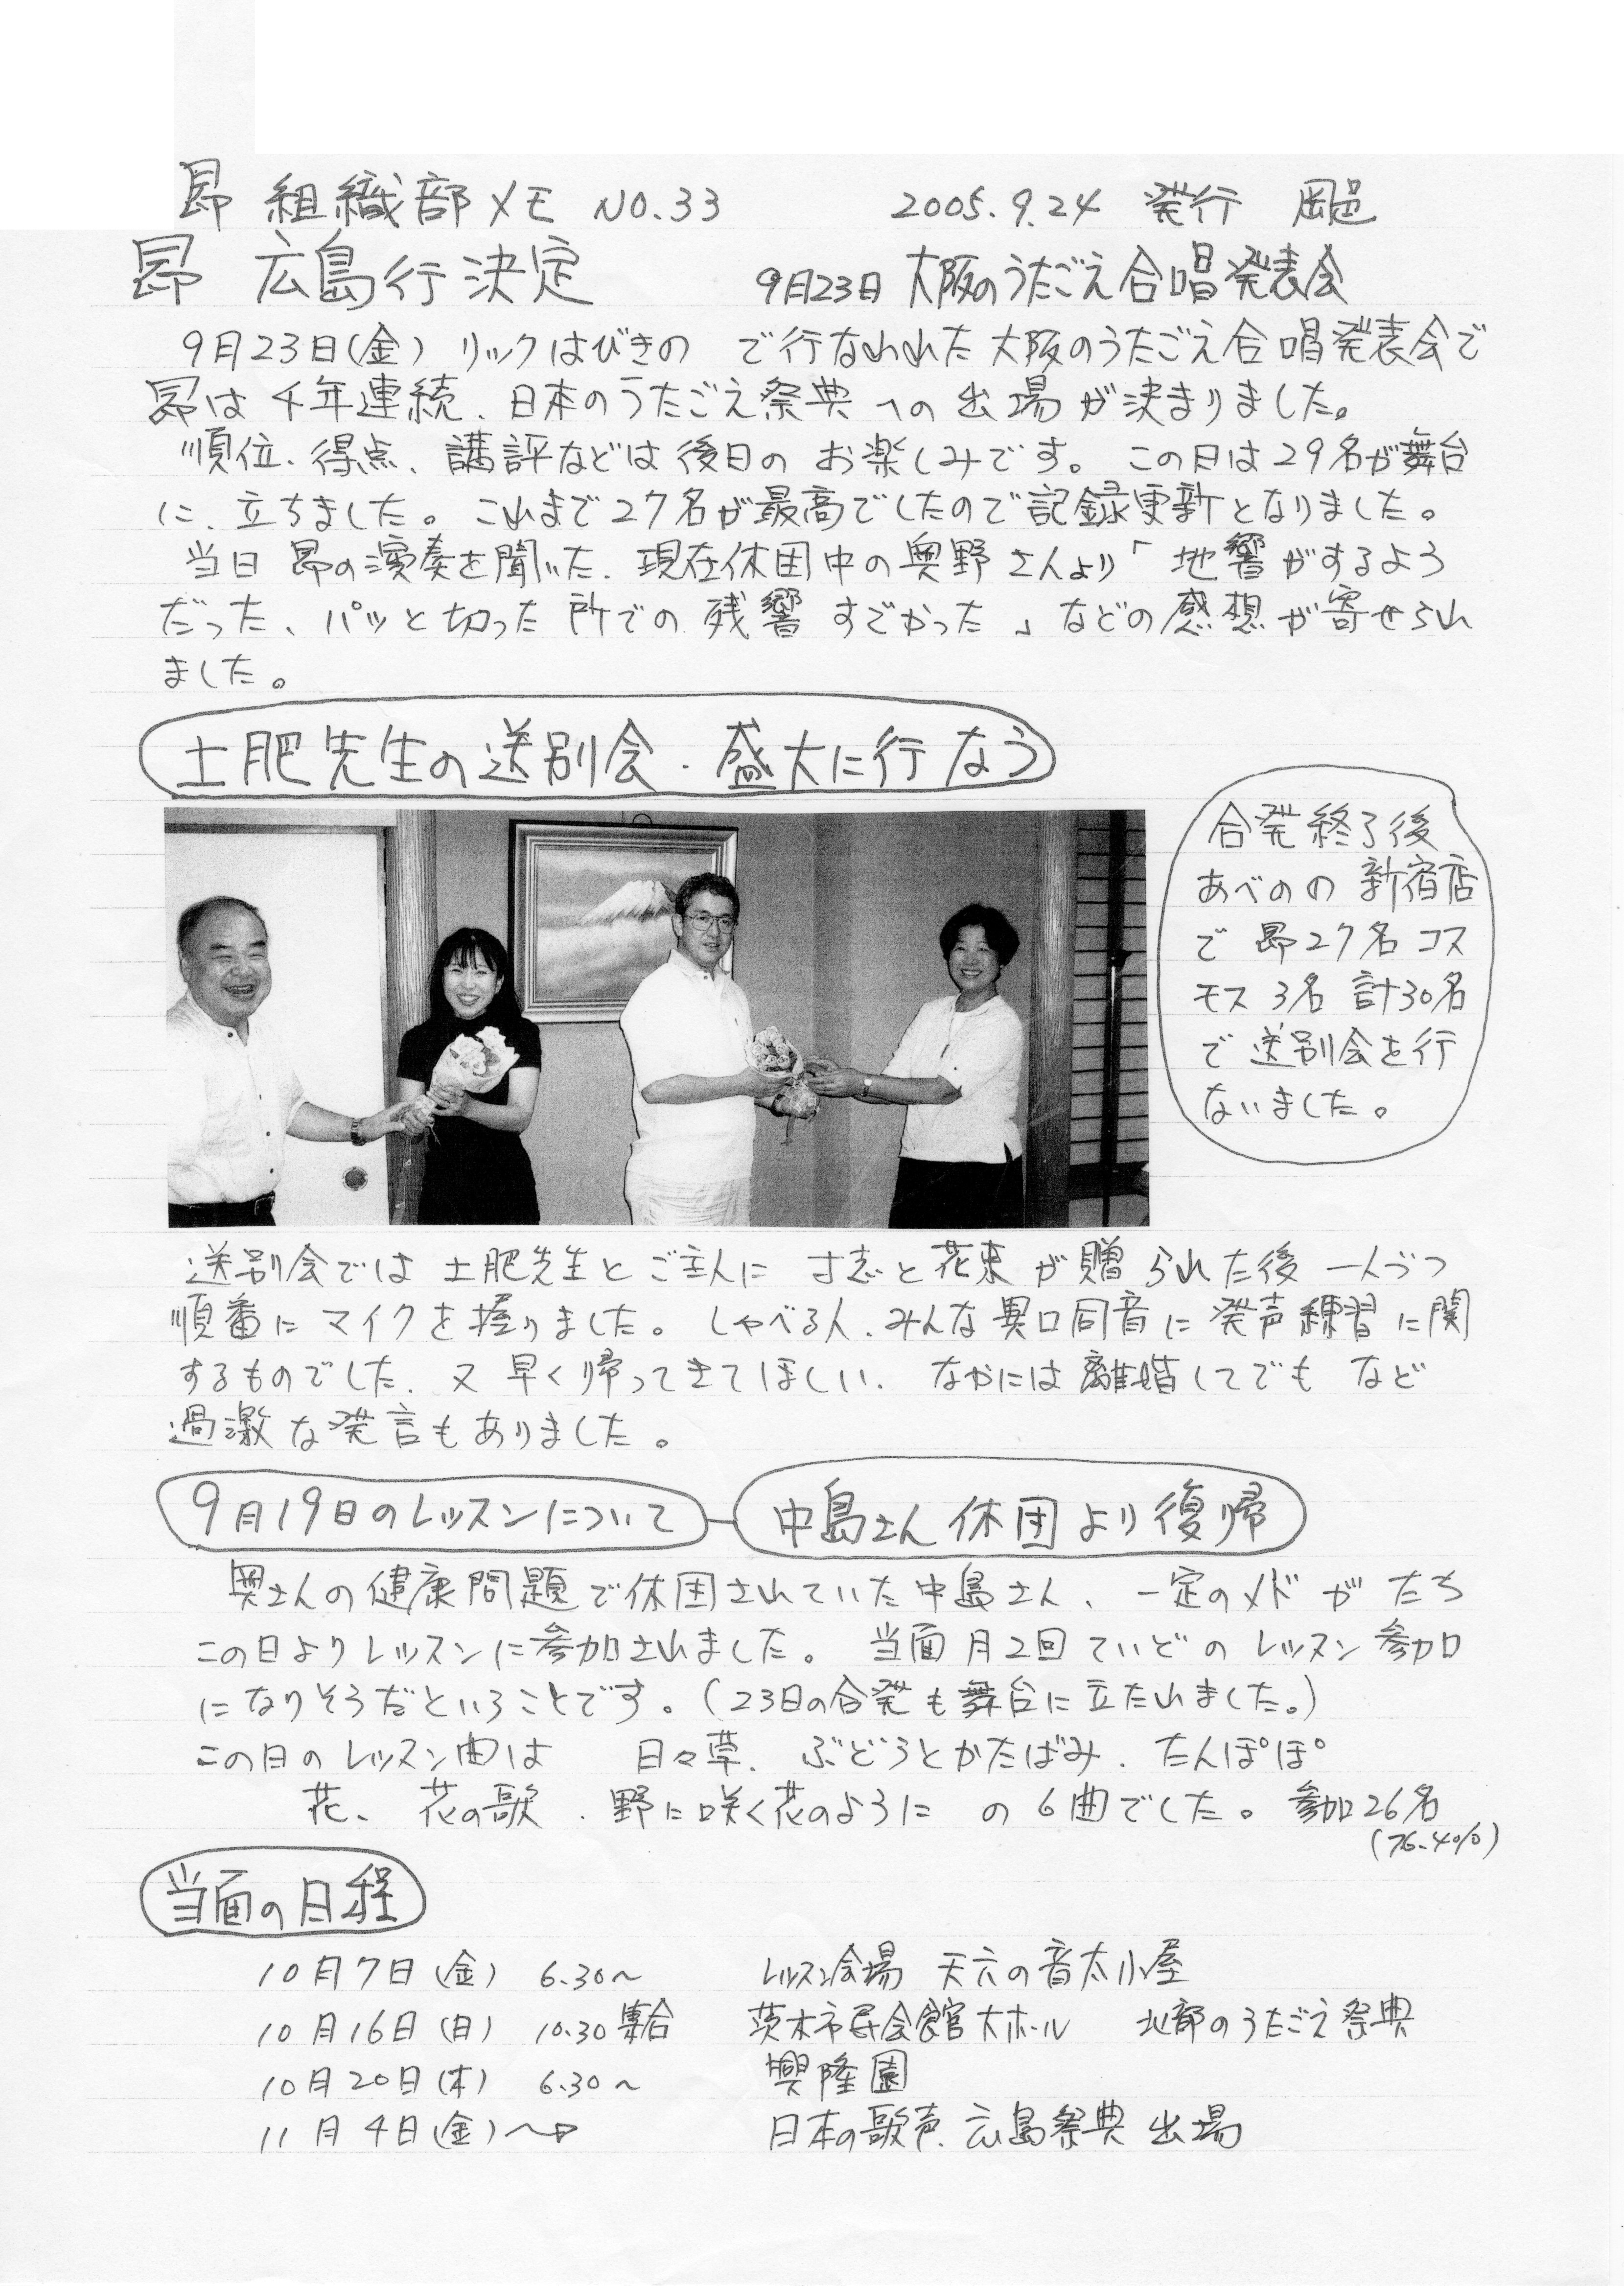 昴 組織部メモ NO.33 2005.9.24 発行 岡邑
昴 広島行決定 9月23日 大阪のうたごえ合唱発表会
9月23日(金) リックはびきの で行なわれた大阪のうたごえ合唱発表会で
昴は 4年連続、日本のうたごえ祭典への出場が決まりました。
順位、得点、講評などは後日の お楽しみです。 この日は29名が舞台
に、立ちました。これまで27名が最高でしたので記録更新となりました。
当日 昴の演奏を聞いた、現在休団中の奥野さんより「地響がするよう
だった、パッと切った所での残響 すごかった」などの感想が寄せられ
ました。
土肥先生の送別会・盛大に行なう
合発終了後
あべのの 新宿店
で 昴27名 コス
モス 3名 計30名
で送別会を行
ないました。
送別会では 土肥先生とご主人に 寸志と花束が贈られた後 一人づつ
順番に マイクを握りました。しゃべる人、みんな異口同音に発声練習に関
するものでした、又 早く帰ってきてほしい、なかには離婚してでも など
過激な発言もありました。
9月19日のレッスンについて 中島さん休団より復帰
奥さんの健康問題で休団されていた中島さん、一定のメドが たち
この日よりレッスンに参加されました。 当面月2回ていどの レッスン参加
になりそうだということです。(23日の合発も舞台に立たれました。)
この日の レッスン曲は 日々草、ぶどうとかたばみ、たんぽぽ
花、 花の歌 、野に咲く花のように の6曲でした。参加26名
(76.4%)
当面の日程
10月7日(金) 6.30〜 レッスン会場 天六の音太小屋
10月16日(日) 10.30集合 茨木市民会館大ホール 北部のうたごえ祭典
10月20日(木) 6.30〜 興隆園
11月4日(金)〜 日本の歌声、広島祭典 出場